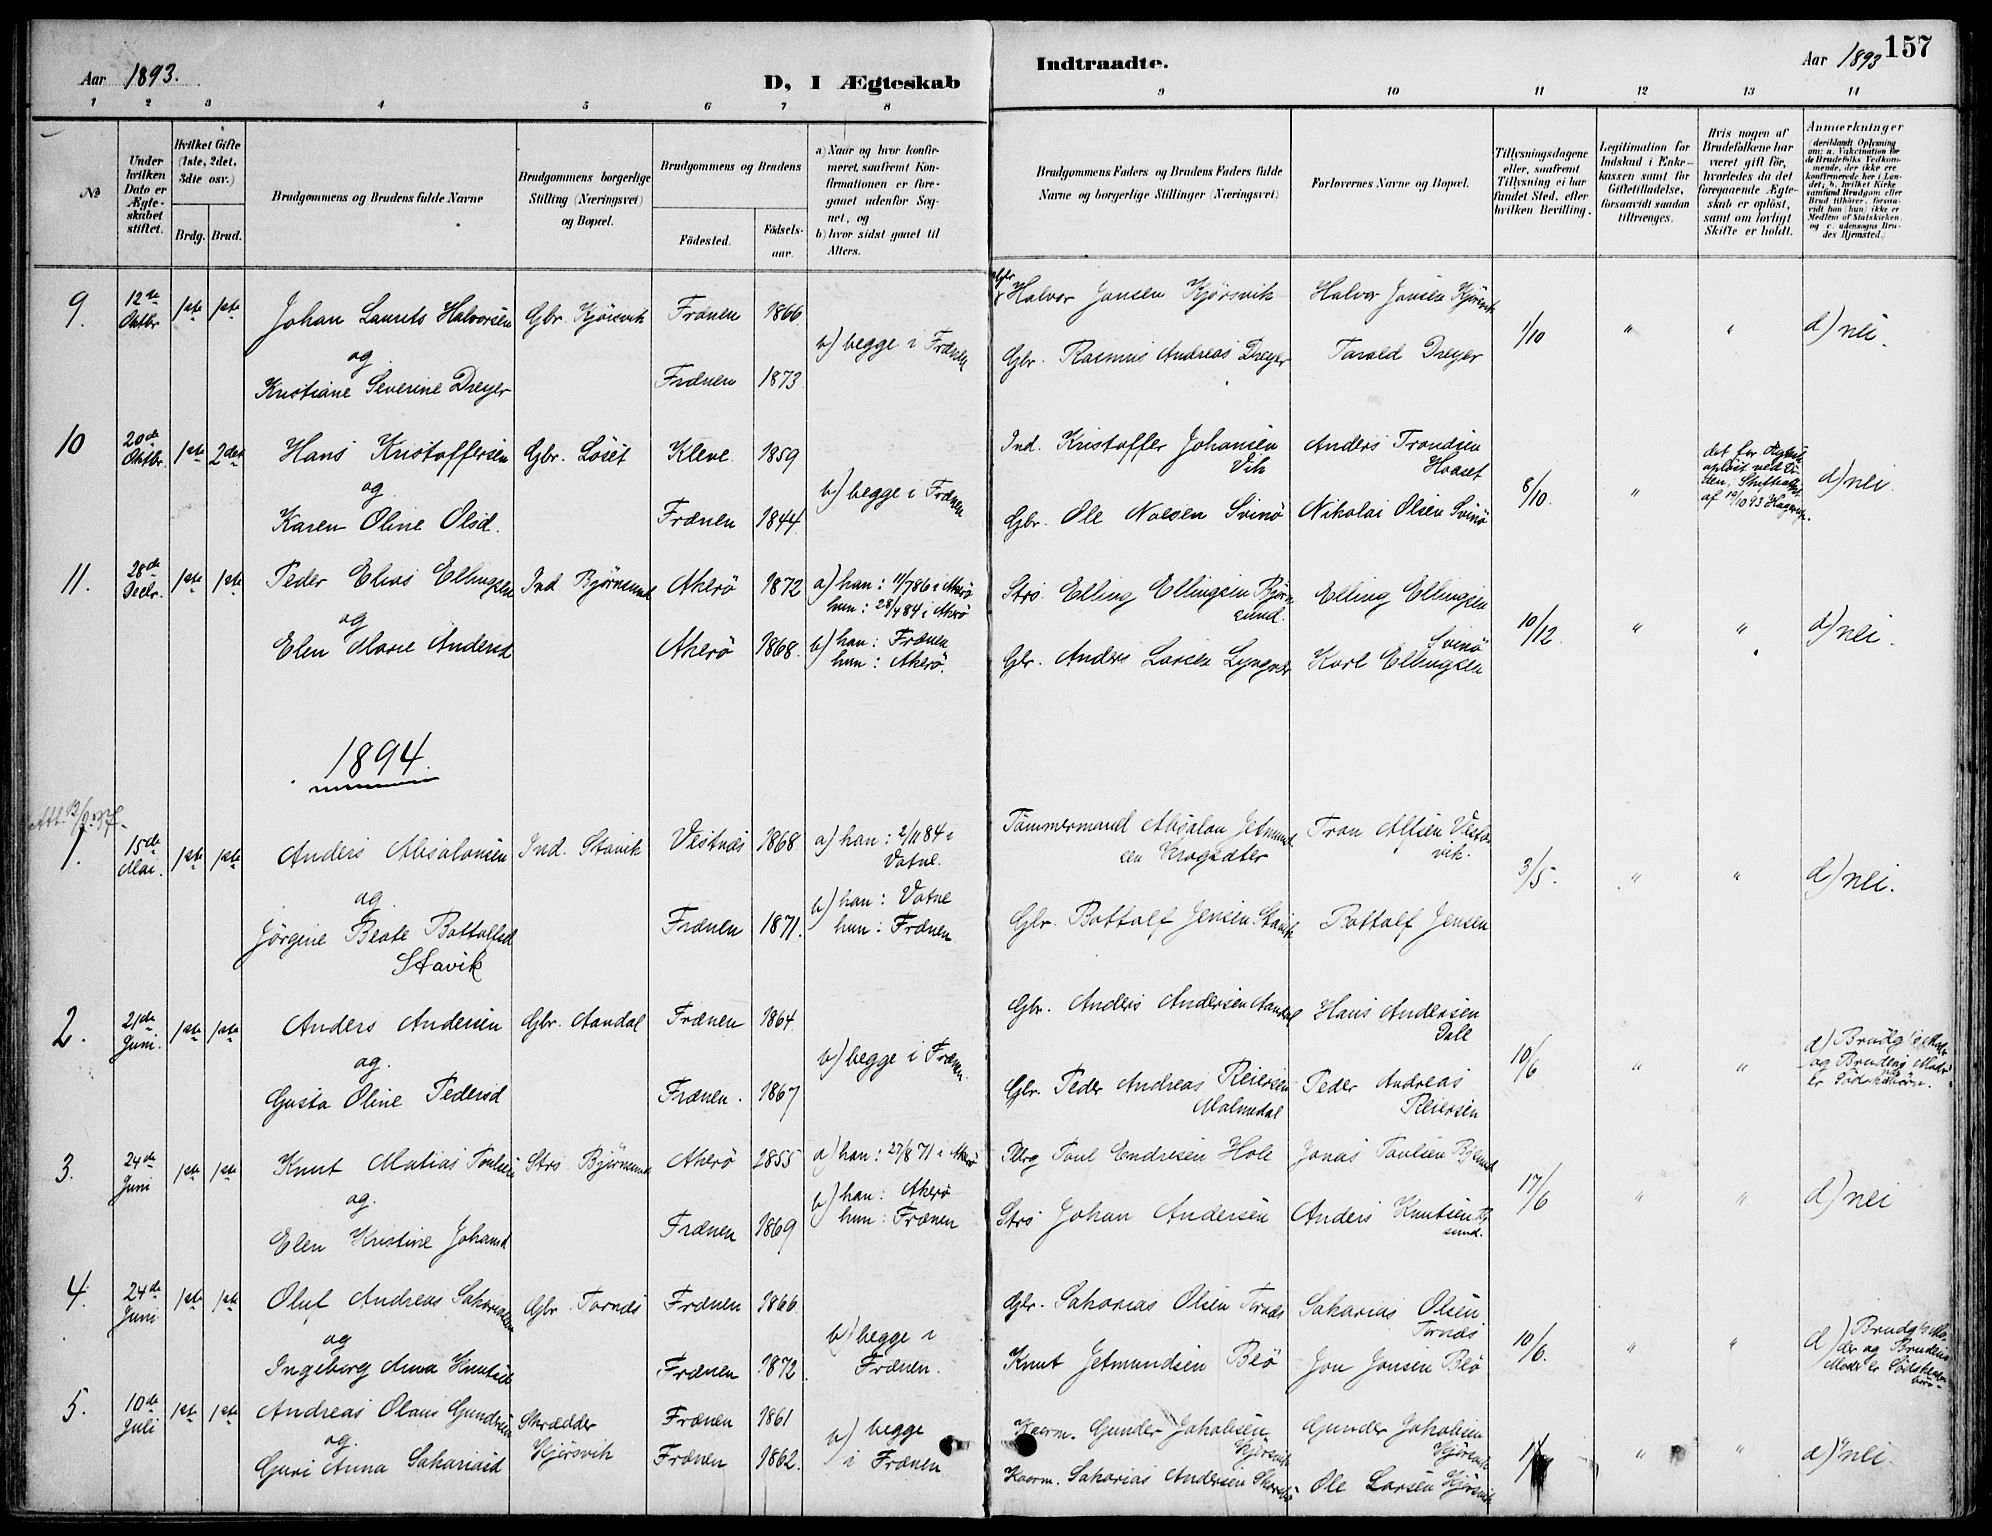 Aar 1893.
D, I Ægteskab
Indtraadte.
Aar 1893
157
1 2 3 4 5 6 7 8 9 10 11 12 13 14
No
Under hvilken Dato er Ægteskabet stiftet.
Hvilket Gifte (1ste, 2det, 3die osv.)
Brdg. Brud.
Brudgommens og Brudens fulde Navne
Brudgommens borgerlige Stilling (Næringsvei) og Bopæl.
Brudgommens og Brudens
Fødested.
Fødselsaar.
a) Naar og hvor konfirmeret, saafremt Konfirmationen er foregaaet udenfor Sognet, og
b) hvor sidst gaaet til Alters.
Brudgommens Faders og Brudens Faders fulde Navne og borgerlige Stillinger (Næringsvei)
Forlovernes Navne og Bopæl.
Tillysningsdagene eller, saafremt Tillysning ei har fundet Sted, efter hvilken Bevilling.
Legitimation for Indskud i Enkekassen samt for Giftetilladelse, forsaavidt saadan tiltrænges.
Hvis nogen af Brudefolkene har været gift før, hvorledes da det foregaaende Ægteskab er opløst, samt om lovligt Skifte er holdt.
Anmærkninger (deriblandt Oplysning om: a. Vakcination for de Brudefolks Vedkommende, der ikke ere konfirmerede her i Landet; b. hvilket Kirkesamfund Brudgom eller Brud tilhører, forsaavidt han (hun) ikke er Medlem af Statskirken, og c. udensogns Brudes Hjemsted.)
9. 12te Oktbr 1ste 1ste Johan Laurits Halvorsen Gbr. Kjørsvik Frænen 1866 b) begge i Frænen Gbr Halvor Jonsen Kjørsvik Halvor Jonsen Kjørsvik 1/10 " " d) nei.
og
Kristiane Severine Dreyer Frænen 1873 Gbr. Rasmus Andreas Dreyer Tarald Dreyer
10 20de Oktbr. 1ste 2det Hans Kristoffersen Gbr. Løset Kleve 1859 b) begge i Frænen Ind. Kristoffer Johansen Vik Anders Trondsen Haaset 8/10. " det før Ægtesk. opløst ved Døden; Skifteattest af 19/10 93 d) nei.
og
Karen Oline Olsd. Frænen 1844 Gbr. Ole Nielsen Svinø Nikolai Olsen Svinø
11. 28de Decbr. 1ste 1ste Peder Elias Ellingsen Ind Bjørnsund Akerø 1872 a) han: 11/7 86 i Akerø
hun: 28/9 84 i Akerø Strs. Elling Ellingsen Bjørnsund. Elling Ellingsen 10/12. " " d) nei.
og
Elen Marie Andersd Akerø 1868. b) han: Frænen
hun: Akerø. Gbr. Anders Larsen Lyngvær Karl Ellingsen Svinø
1894.
1. 15de Mai. 1ste 1ste Anders Absalonsen Ind. Stavik Vestnæs 1868 a) han: 2/11 84 i Vatne. Tømmermand Absalon Jetmundsen Krogsæter Tron Alfsen Vestavik. 3/5. " " d) nei.
og
Jørgine Beate Bottolfsd Stavik Frænen 1871. b) han: Vatne
hun: Frænen Gbr. Bottolf Jensen Stavik Bottolf Jensen
2. 21de Juni. 1ste 1ste Anders Andersen Gbr. Aandal Frænen 1864. b) begge i Frænen. Gbr. Anders Andersen Aandal Hans Andersen Dale 10/6 " " d) Brudg's Moder og Brudens Moder er Sødskenbørn.
og
Gusta Oline Pedersd Frænen. 1867 Gbr. Peder Andreas Reiersen Malmedal Peder Andreas Reiersen
3. 24de Juni 1ste 1ste Knut Matias Poulsen Strs Bjørnsund Akerø 1855 a) han: 27/8 71 i Akerø Poul Endresen Hole Jonas Poulsen Bjsund 17/6 " " d) nei
og
Elen Kristine Johansd Frænen 1869 b) han: Akerø
hun: Frænen Strs Johan Andersen Anders Knutsen Bjsund.
4. 24de Juni 1ste 1ste Oluf Andreas Sakariassen Gbr. Tornæs Frænen 1866 b) begge i Frænen. Gbr. Sakarias Olsen Tornæs Sakarias Olsen Tornæs 10/6. " " d) Brudg's Moder og Brudens Moder er Sødskenbørn.
og
Ingeborg Anna Knutsd Frænen 1872. Knut Jetmundsen Blø Jon Jonsen Blø
5. 10de Juli 1ste 1ste Andreas Olaus Gundersen Skrædder Hjørsvik Frænen 1861 b) begge i Frænen Kaarm. Gunder Jakobsen Hjørsvik Gunder Jakobsen Hjørsvik " " d) nei.
og
Guri Anna Sakariasd Frænen 1862. Kaarm. Sakarias Andersen Ole Larsen Hjørsvik